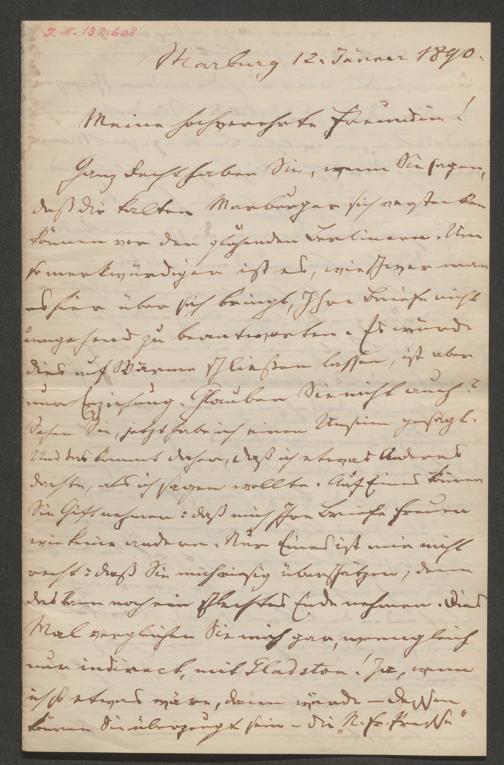 J. N. 132.608
Marburg 12. Jänner 1890.
Meine hochverehrte Freundin!
Ganz Recht haben Sie, wenn Sie sagen,
daß die kalten Marburger sich verstecken
können vor den glühenden Berlinern. Um
so merkwürdiger ist es, wie schwer man
es hier über sich bringt, Ihre Briefe nicht
umgehend zu beantworten. Es würde
dies auf Wärme schließen lassen, ist aber
nur Erziehung. Glauben Sie nicht auch?
Sehen Sie, jetzt habe ich einen Unsinn gesagt.
Und das kommt daher, daß ich etwas Anderes
dachte, als ich sagen wollte. Auf Eines können
Sie Gift nehmen: daß mich Ihre Briefe freuen
wie keine andern. Nur Eines ist mir nicht
recht: daß Sie mich riesig überschätzen; denn
das kann noch ein schlechtes Ende nehmen. Dies
Mal verglichen Sie mich gar, wenngleich
nur indirect, mit Gladston! Ja, wenn
ich so etwas wäre, dann würde – dessen
können Sie überzeugt sein – die „N. fr. Presse"